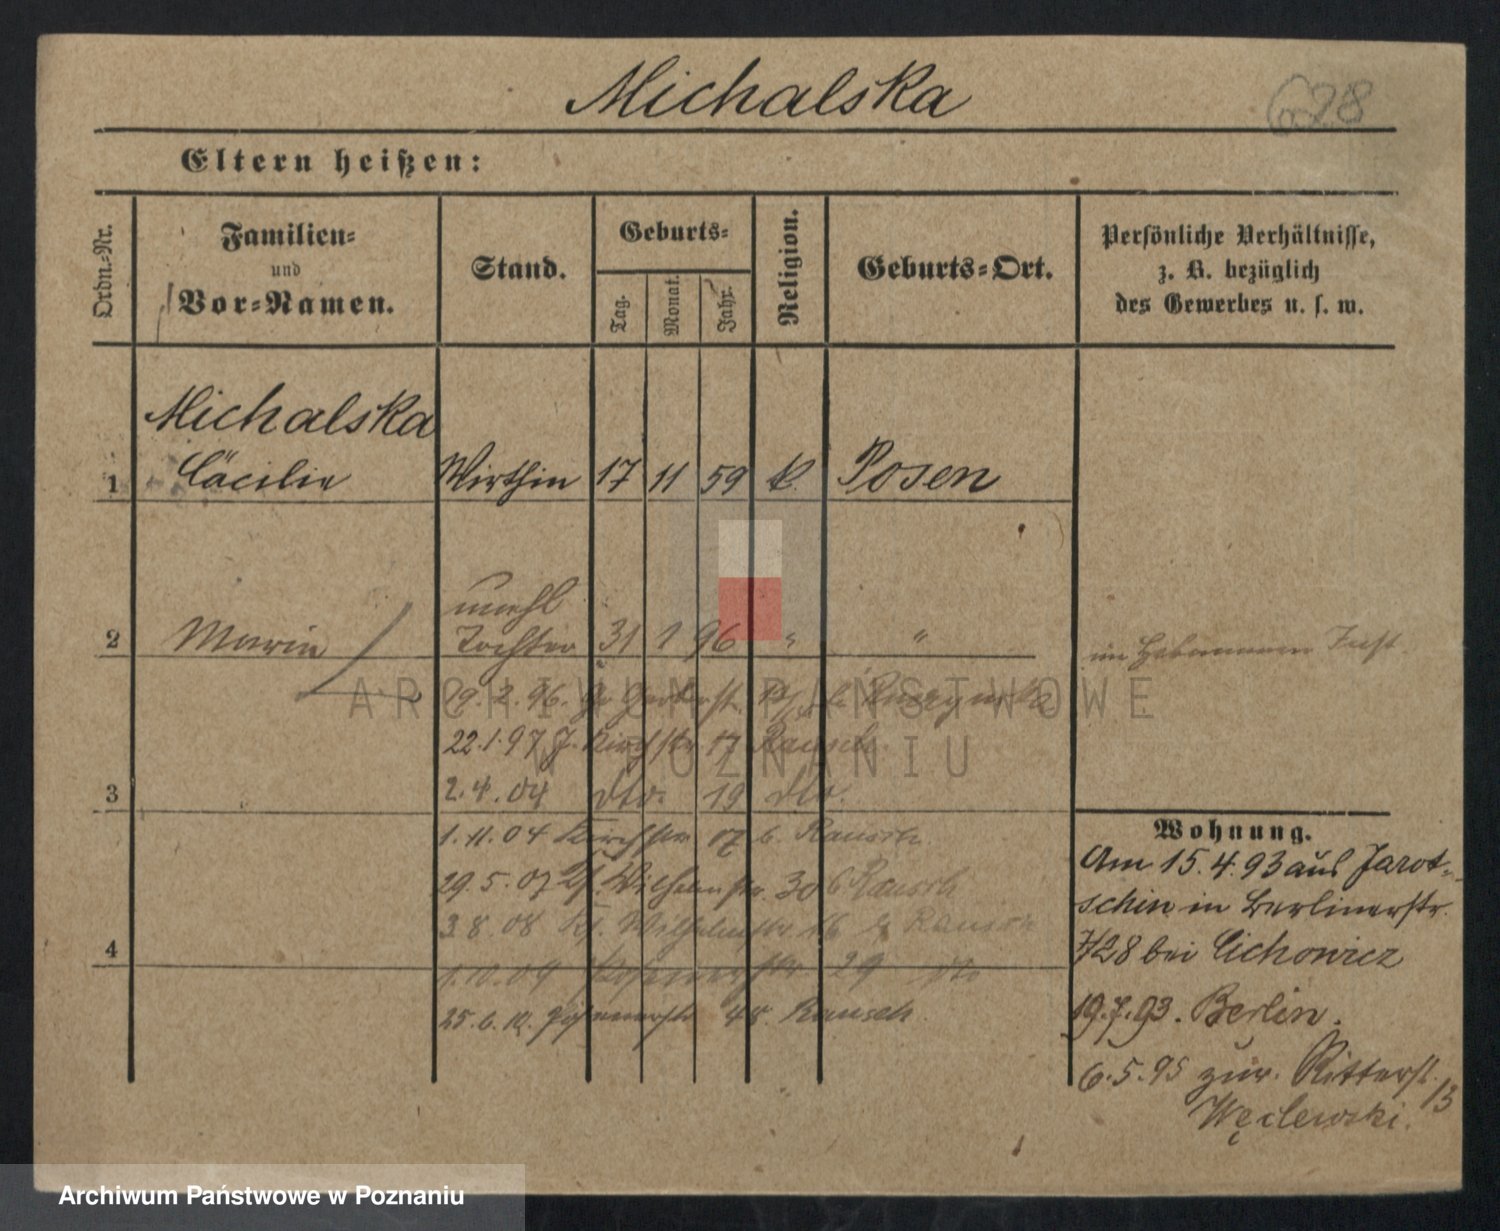 Michalska
628
Eltern heißen:
Ordn.-Nr.
Familien-
und
Vor-Namen.
Stand.
Geburts-
Tag.
Monat.
Jahr.
Religion.
Geburts-Ort.
Persönliche Verhältnisse,
z. B. bezüglich
des Gewerbes u. s. w.
Michalska
1 Cäcilie Wirthin 17 11 59 k. Posen
unehl
2 Marie Tochter 31 1 96 " "
im Hebammen Inst.
19.2.96.
22.1.97 J. Kirchstr. 17 Rausch.
3
2.4.04 dto. 19 dto.
1.11.04 Kirchstr 17 b. Rausch.
29.5.07 Wilhelmstr. 30 b Rausch
3.8.08 Wilhelmstr. 16 b Rausch
4
1.10.09 Posenerstr 29 dto
25.6.10. Posenerstr 48. Rausch.
Wohnung.
Am 15.4.93 aus Jarot-
schin in Berlinerstr.
7/28 bei Cichowicz
19.7.93. Berlin.
6.5.95 zur. Ritterst. 13
Węclewski.
ARCHIWUM PAŃSTWOWE
W POZNANIU
Archiwum Państwowe w Poznaniu